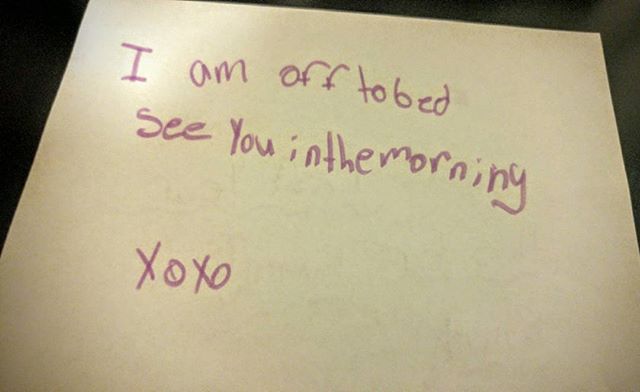 I am off to bed
See You in the morning
XOXO